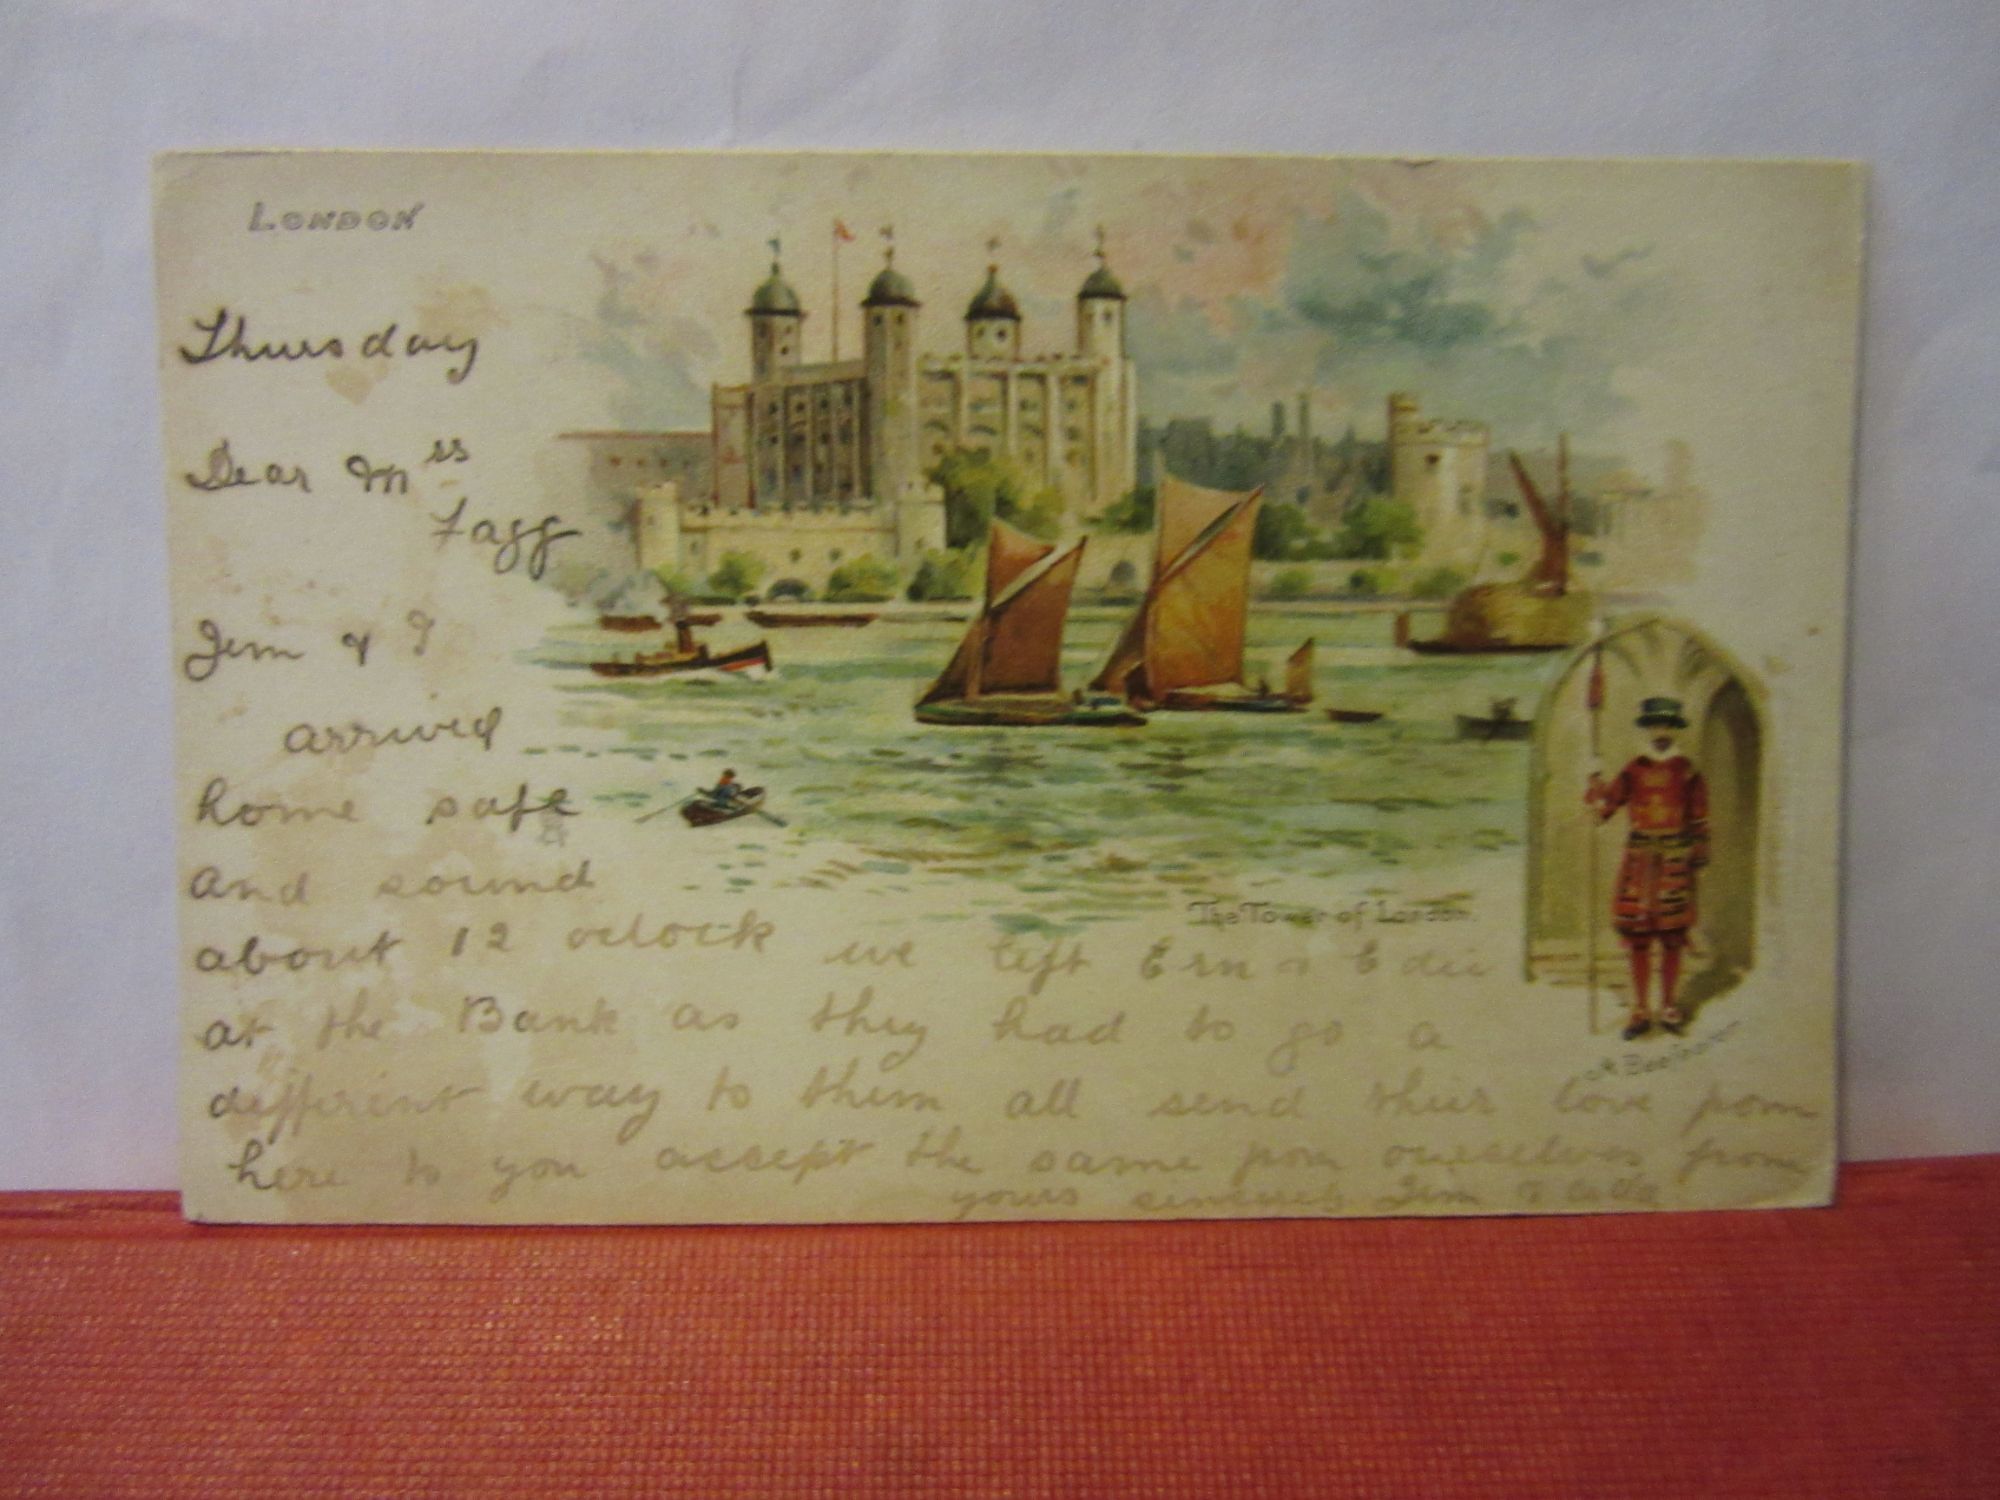 LONDON
Thursday
Dear Mrs
Fagg
Jem & I
arrived
home safe
and sound
The Tower of London.
about 12 oclock we left Ern & Edie
at the Bank as they had to go a
A Beefeater
different way to them all send their love from
here to you accept the same from ourselves from
yours sincerely Jem &